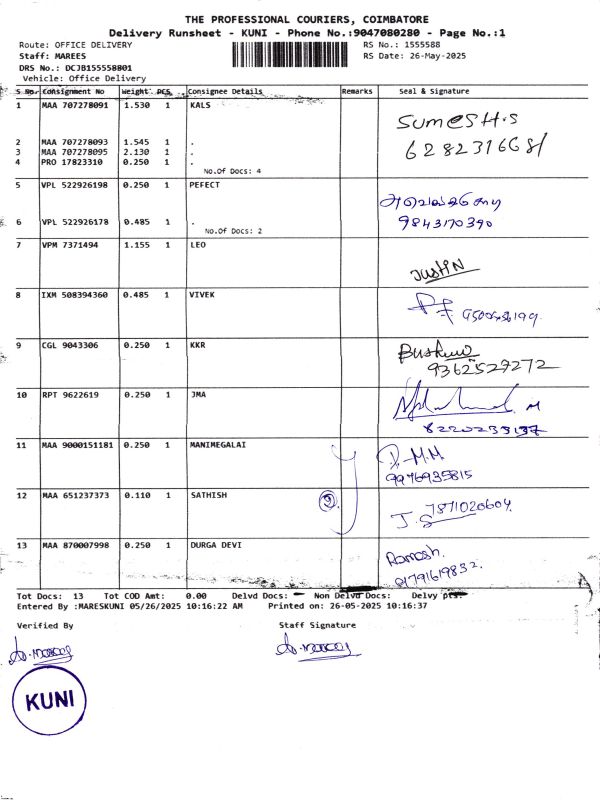 THE PROFESSIONAL COURIERS, COIMBATORE
Delivery Runsheet - KUNI - Phone No.:9047080280 - Page No.:1
Route: OFFICE DELIVERY RS No.: 1555588
Staff: MAREES RS Date: 26-May-2025
DRS No.: DCJB155558801
Vehicle: Office Delivery
S No. Consignment No Weight PCS Consignee Details Remarks Seal & Signature
1 MAA 707278091 1.530 1 KALS
SUMESH.S
2 MAA 707278093 1.545 1 .
3 MAA 707278095 2.130 1 .
6282316681
4 PRO 17823310 0.250 1 .
No.Of Docs: 4
5 VPL 522926198 0.250 1 PEFECT
6 VPL 522926178 0.485 1 .
9843170390
No.Of Docs: 2
7 VPM 7371494 1.155 1 LEO
Justin
8 IXM 508394360 0.485 1 VIVEK
9 CGL 9043306 0.250 1 KKR
9362527272
10 RPT 9622619 0.250 1 JMA
8220233137
11 MAA 9000151181 0.250 1 MANIMEGALAI
D.M.M.
9976935815
12 MAA 651237373 0.110 1 SATHISH
7871020604
J.S
13 MAA 870007998 0.250 1 DURGA DEVI
Ramesh.
Tot Docs: 13 Tot COD Amt: 0.00 Delvd Docs: Non Delvd Docs: Delvy pts:
Entered By :MARESKUNI 05/26/2025 10:16:22 AM Printed on: 26-05-2025 10:16:37
Verified By Staff Signature
KUNI